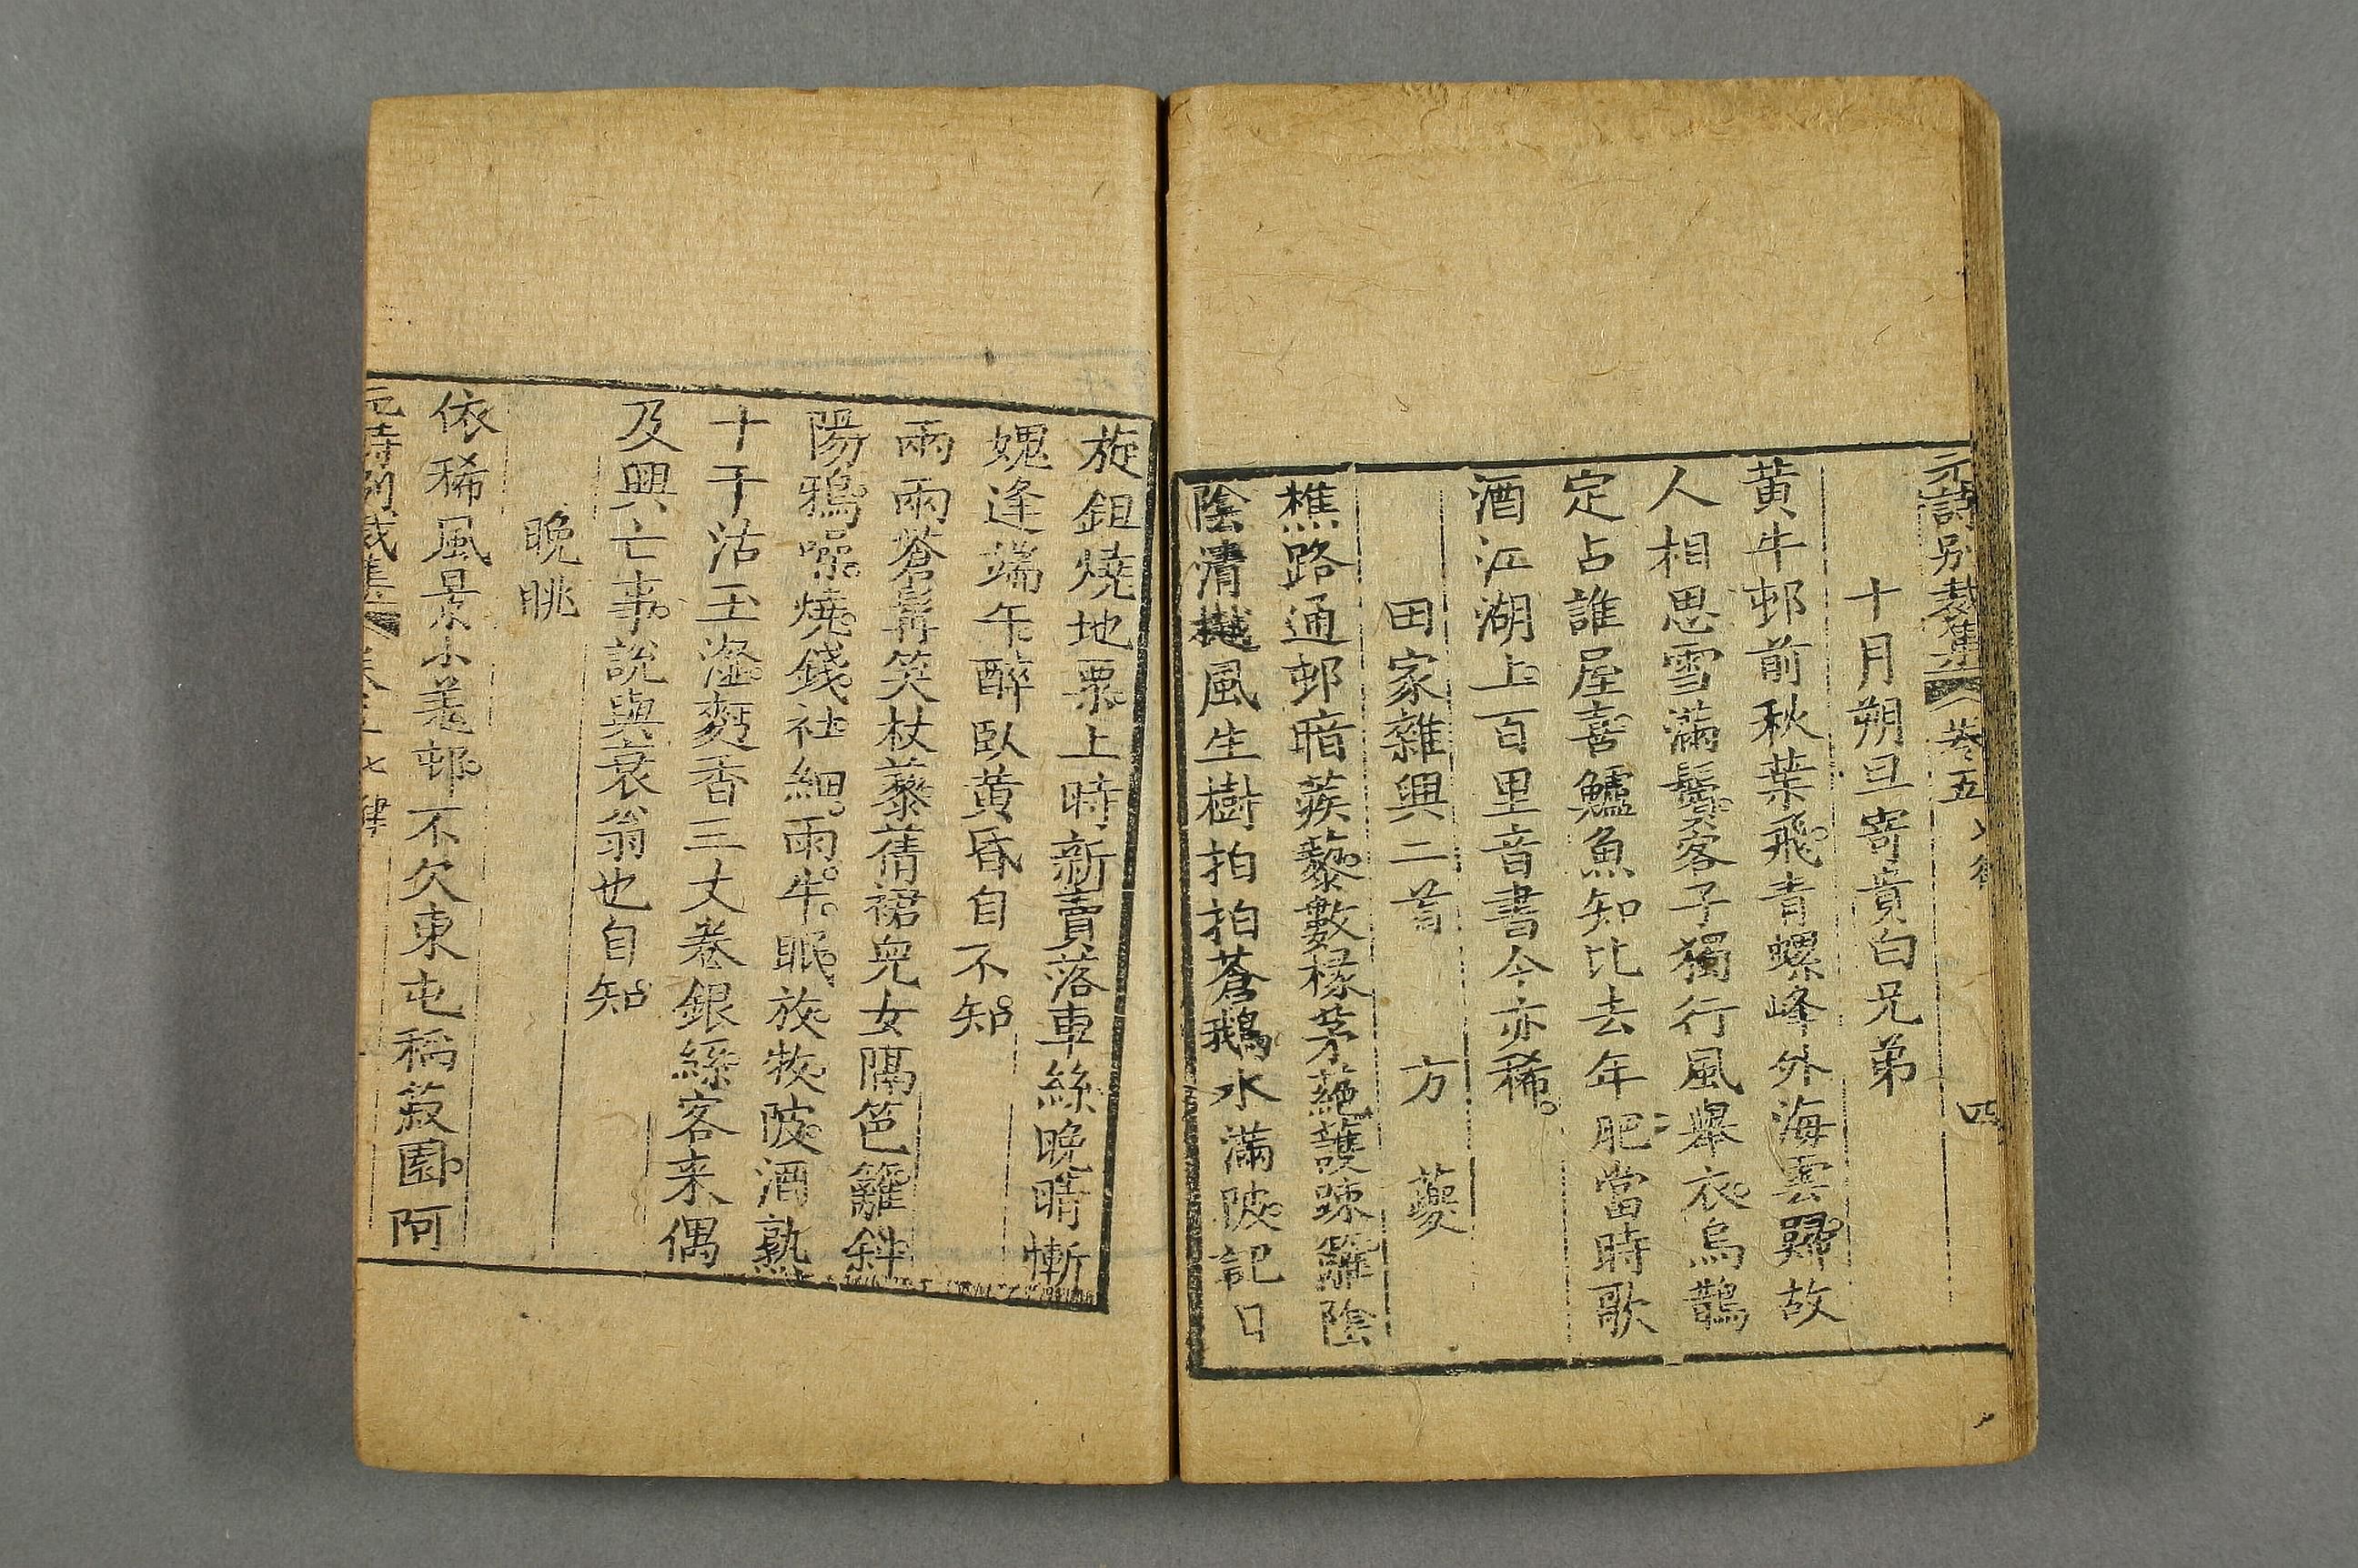 元詩別裁集 卷五 七律 四
十月朔旦寄貢白兄弟
黄牛邨前秋葉飛青螺峰外海雲歸故
人相思雪滿鬢客子獨行風舉衣烏鵲
定占誰屋喜鱸魚知比去年肥當時歌
酒江湖上百里音書今亦稀
田家雜興二首 方夔
樵路通邨暗蒺藜數椽茅蕝護踈籬陰
陰清樾風生樹拍拍蒼鵝水滿陂記日
旋鉏燒地粟上時新賣落車絲晚晴慚
媿逢端午醉臥黄昏自不知
兩兩蒼髯笑杖藜蒨裙兒女隔笆籬斜
陽鴉噪燒錢社細雨牛眠放牧陂酒熟
十千沽玉瀣麪香三丈卷銀絲客来偶
及興亡事說與衰翁也自知
晚眺
依稀風景小姜邨不欠東屯稻蔌園阿
元詩別裁集 卷五 七律